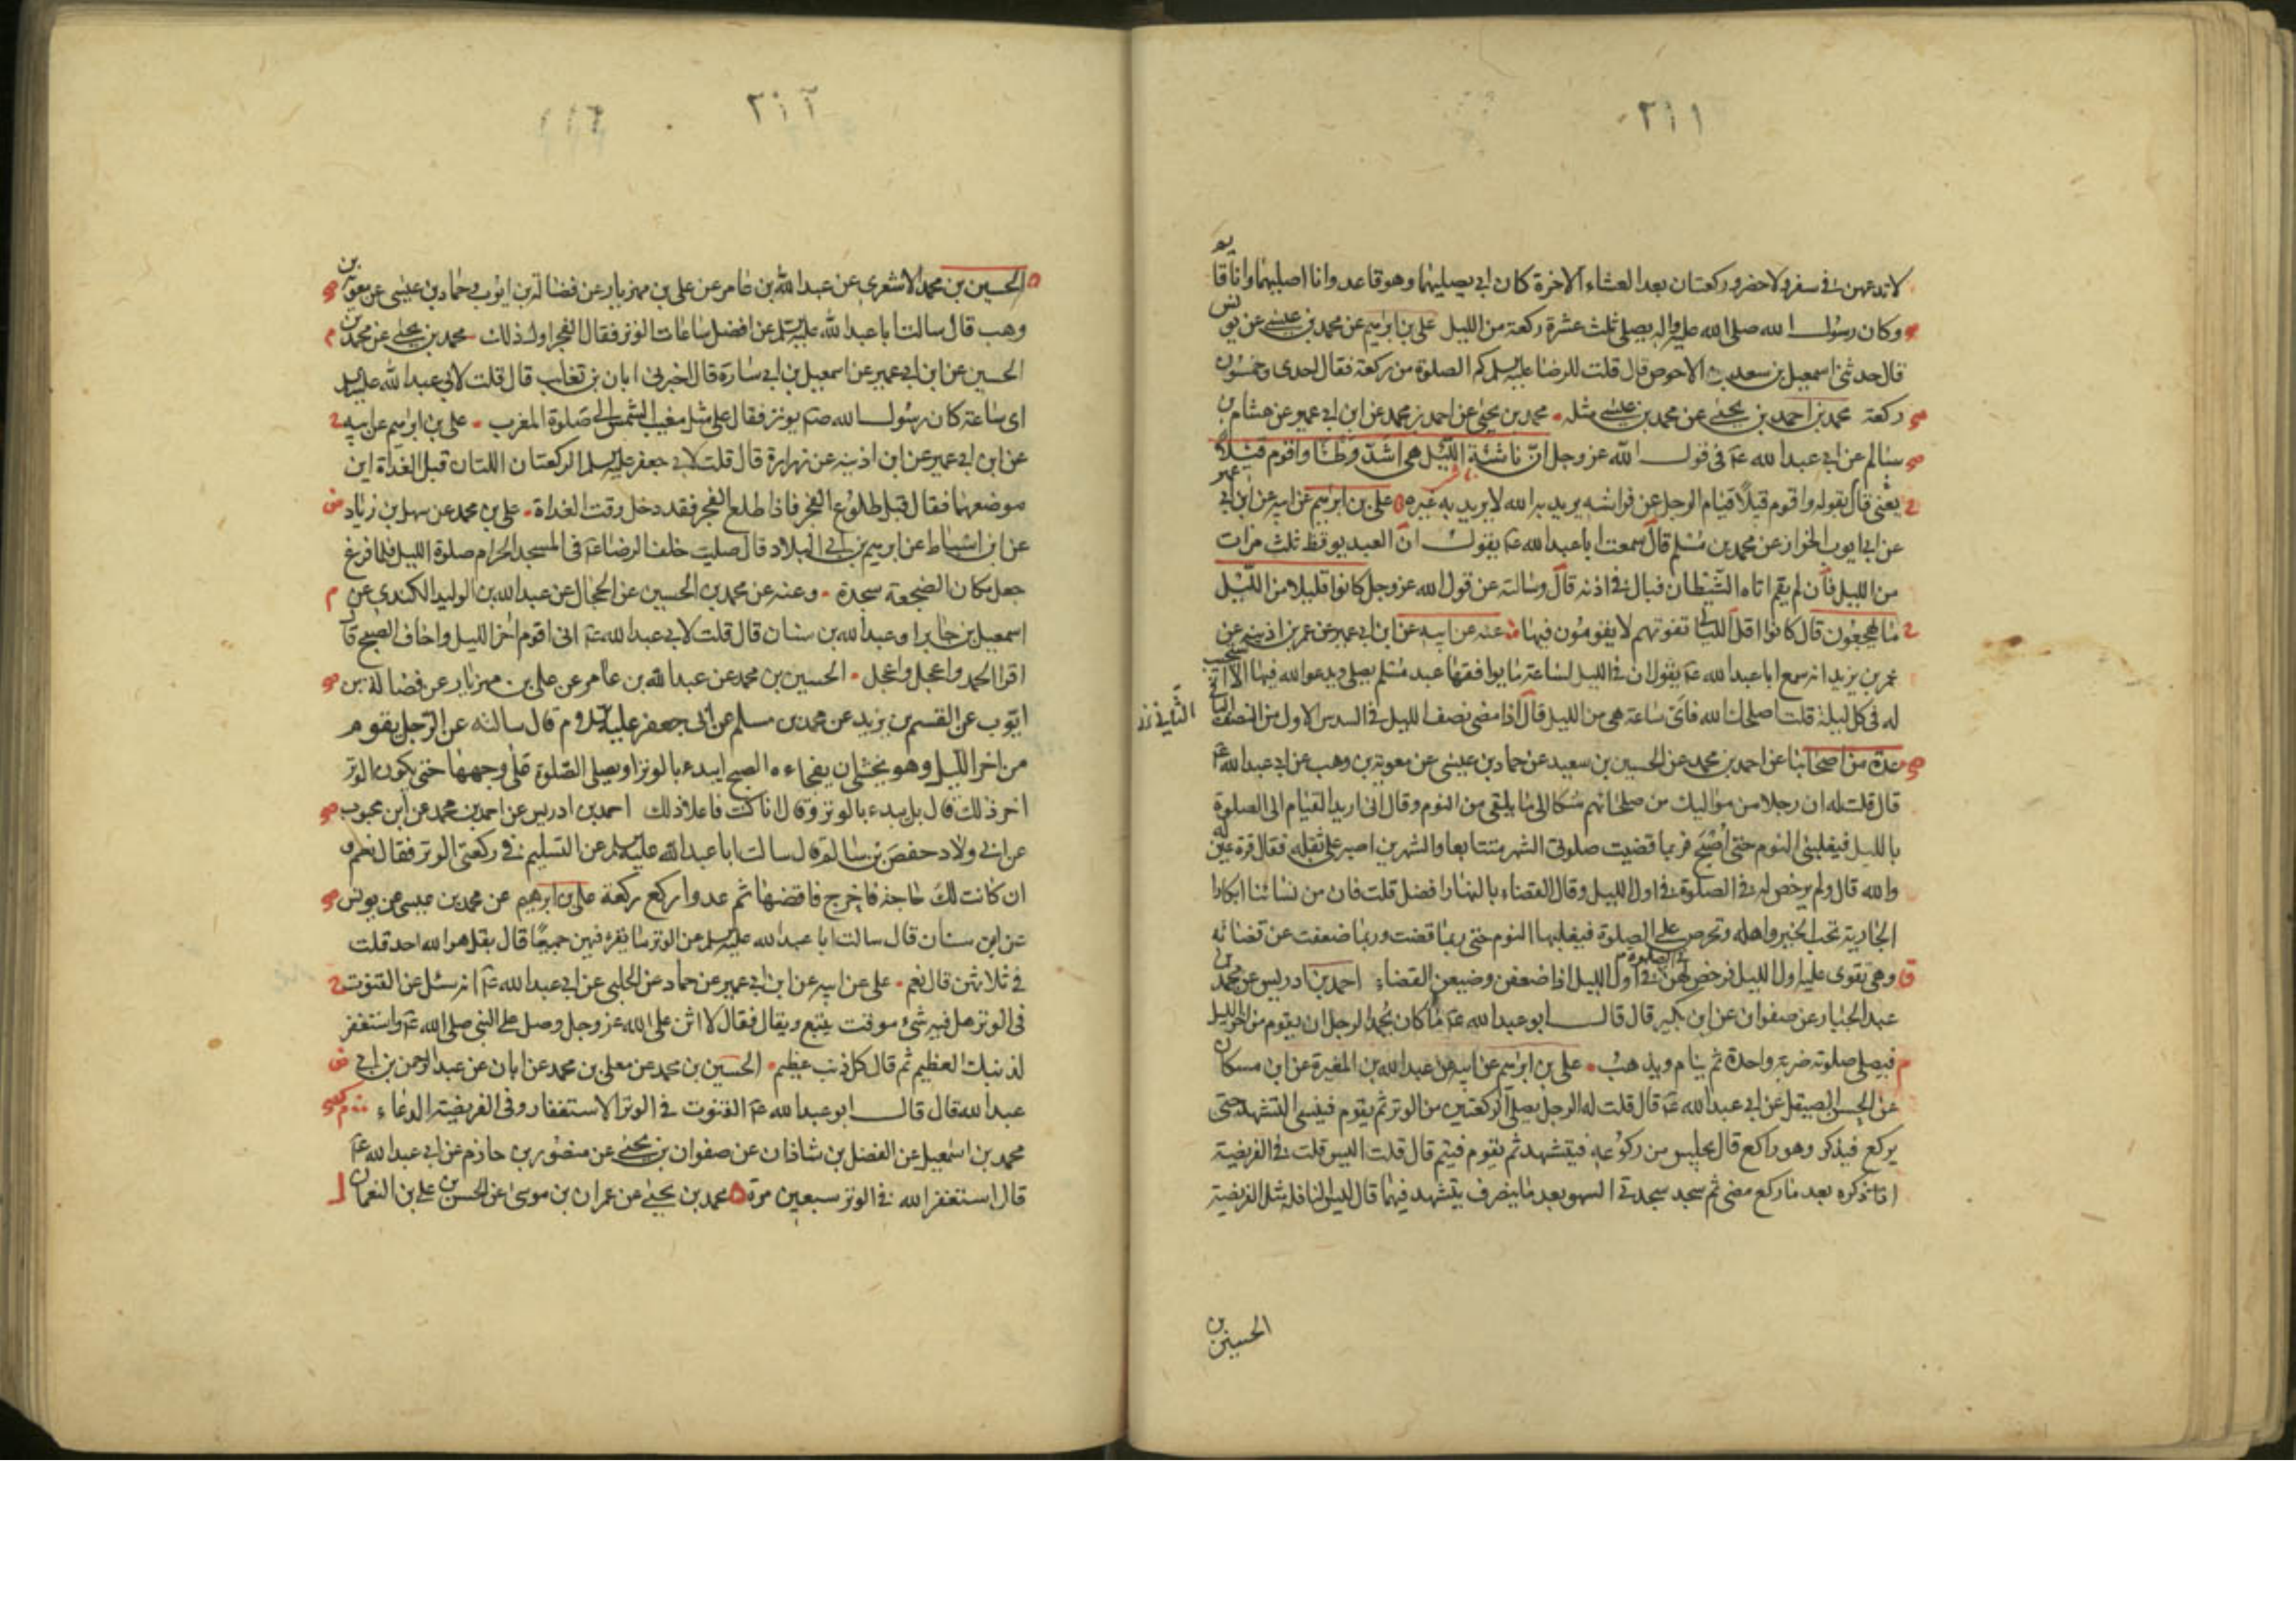 ٢١١
لا تدعهن في سفر ولا حضر وركعتان بعد العشاء الاخرة كان ابي يصليهما وهو قاعد وانا اصليهما وانا قا يو
وكان رسول الله صلى الله عليه واله يصلي ثلث عشرة ركعة من الليل علي بن ابراهيم عن محمد بن عيسى عن يو نس
قال حدثني اسمعيل بن سعد بن الاحوص قال قلت للرضا عليه السلم كم الصلوة من ركعة فقال احدى وخمسون
ركعة محمد بن احمد بن يحيى عن محمد بن عيسى مثله محمد بن يحيى عن احمد بن محمد عن ابن ابي عمير عن هشام بن
سالم عن ابي عبد الله عم في قول الله عز وجل ان ناشئة الليل هي اشد وطئا واقوم قيلا
يعني قال بقوله واقوم قيلا قيام الرجل عن فراشه يريد به الله لا يريد به غيره علي بن ابراهيم عن ابيه عن ابن ابي عمير
عن ابي ايوب الخراز عن محمد بن مسلم قال سمعت ابا عبد الله عم يقول ان العبد يوقظ ثلث مرات
من الليل فان لم يقم اتاه الشيطان فبال في اذنه قال وسالته عن قول الله عز وجل كانوا قليلا من الليل
ما يهجعون قال كانوا اقل الليالي تفوتهم لا يقومون فيها عنه عن ابيه عن ابن ابي عمير عن عمر بن اذينة عن
عمر بن يزيد انه سمع ابا عبد الله عم يقول ان في الليل لساعة ما يوافقها عبد مسلم يصلي ويدعو الله فيها الا استجيب
له في كل ليلة قلت اصلحك الله فاي ساعة هي من الليل قال اذا مضى نصف الليل في السدس الاول من النصف الباقي
عدة من اصحابنا عن احمد بن محمد عن الحسين بن سعيد عن حماد بن عيسى عن معوية بن وهب عن ابي عبد الله عم
قال قلت له ان رجلا من مواليك من صلحائهم شكا الي ما يلقى من النوم وقال اني اريد القيام الى الصلوة
بالليل فيغلبني النوم حتى اصبح فربما قضيت صلوتي الشهر متتابعا والشهرين اصبر على ثقله فقال قرة عين له
والله قال ولم يرخص له في الصلوة في اول الليل وقال القضاء بالنهار افضل قلت فان من نسائنا ابكارا
الجارية تحب الخير واهله وتحرص على الصلوة فيغلبها النوم حتى ربما قضت وربما ضعفت عن قضائه
وهي تقوى عليه اول الليل فرخص لهن في الصلوة في اول الليل اذا ضعفن وضيعن القضاء احمد بن ادريس عن محمد بن
عبد الجبار عن صفوان عن ابن بكير قال قال ابو عبد الله عم ما كان يحمد الرجل ان يقوم من اخر الليل
فيصلي صلوته ضربة واحدة ثم ينام ويذهب علي بن ابراهيم عن ابيه عن عبد الله بن المغيرة عن ابن مسكان
عن الحسن الصيقل عن ابي عبد الله عم قال قلت له الرجل يصلي الركعتين من الوتر ثم يقوم فينسى التشهد حتى
يركع فيذكر وهو راكع قال يجلس من ركوعه فيتشهد ثم يقوم فيتم قال قلت اليس قلت في الفريضة
اذا ذكره بعد ما ركع مضى ثم سجد سجدتي السهو بعد ما ينصرف يتشهد فيهما قال ليس النافلة مثل الفريضة
الحسين بن
٢١٢
الحسين بن محمد الاشعري عن عبد الله بن عامر عن علي بن مهزيار عن فضالة بن ايوب وحماد بن عيسى عن معوية بن
وهب قال سالت ابا عبد الله عليه السلم عن افضل ساعات الوتر فقال الفجر اول ذلك محمد بن يحيى عن محمد بن
الحسين عن ابن ابي عمير عن اسمعيل بن ابي سارة قال اخبرني ابان بن تغلب قال قلت لابي عبد الله عليه السلم
اي ساعة كان رسول الله صم يوتر فقال على مثل مغيب الشمس الى صلوة المغرب علي بن ابراهيم عن ابيه
عن ابن ابي عمير عن ابن اذينه عن زرارة قال قلت لابي جعفر عليه السلم الركعتان اللتان قبل الغداة اين
موضعهما فقال قبل طلوع الفجر فاذا طلع الفجر فقد دخل وقت الغداة علي بن محمد عن سهل بن زياد
عن ابن اسباط عن ابراهيم بن ابي البلاد قال صليت خلف الرضا عم في المسجد الحرام صلوة الليل فلما فرغ
جعل مكان الضجعة سجدة وعنه عن محمد بن الحسين عن الحجال عن عبد الله بن الوليد الكندي عن
اسمعيل بن جابر او عبد الله بن سنان قال قلت لابي عبد الله عم اني اقوم اخر الليل واخاف الصبح قال
اقرا الحمد واعجل واعجل الحسين بن محمد عن عبد الله بن عامر عن علي بن مهزيار عن فضالة بن
ايوب عن القسم بن يزيد عن محمد بن مسلم عن ابي جعفر عليه السلم قال سالته عن الرجل يقوم
من اخر الليل وهو يخشى ان يفجاءه الصبح ايبدء بالوتر او يصلي الصلوة على وجهها حتى يكون الوتر
اخر ذلك قال بل يبدء بالوتر وقال انا كنت فاعلا ذلك احمد بن ادريس عن احمد بن محمد عن ابن محبوب
عن ابي ولاد حفص بن سالم قال سالت ابا عبد الله عليه السلم عن التسليم في ركعتي الوتر فقال نعم و
ان كانت لك حاجة فاخرج فاقضها ثم عد واركع ركعة علي بن ابرهيم عن محمد بن عيسى عن يونس
عن ابن سنان قال سالت ابا عبد الله عليه السلم عن الوتر ما يقرء فيهن جميعا قال بقل هو الله احد قلت
في ثلاثتهن قال نعم علي عن ابيه عن ابن ابي عمير عن حماد عن الحلبي عن ابي عبد الله عم انه سئل عن القنوت
في الوتر هل فيه شيء موقت يتبع ويقال فقال لا اثن على الله عز وجل وصل على النبي صلى الله عم واستغفر
لذنبك العظيم ثم قال كل ذنب عظيم الحسين بن محمد عن معلى بن محمد عن ابان عن عبد الرحمن بن ابي
عبد الله قال قال ابو عبد الله عم القنوت في الوتر الاستغفار وفي الفريضة الدعاء
محمد بن اسمعيل عن الفضل بن شاذان عن صفوان بن يحيى عن منصور بن حازم عن ابي عبد الله عم
قال استغفر الله في الوتر سبعين مرة محمد بن يحيى عن عمران بن موسى عن الحسن بن علي بن النعمان